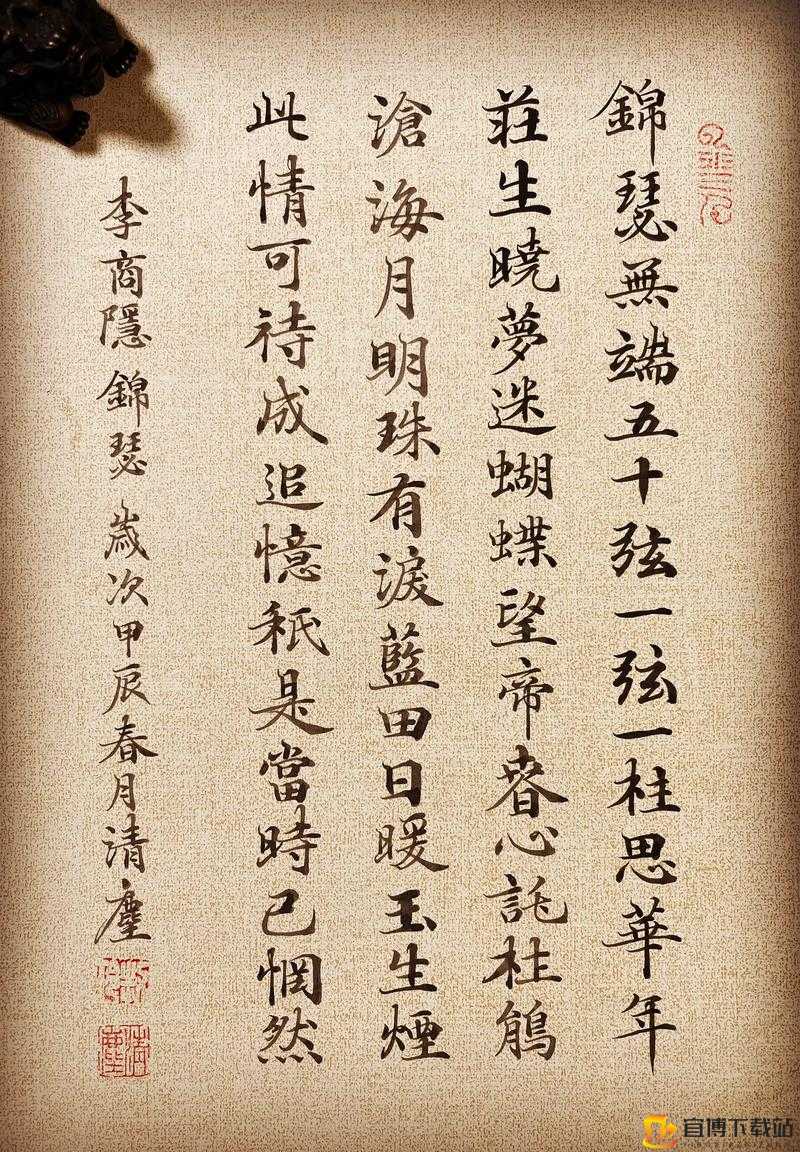 錦瑟無端五十弦一弦一柱思華年
莊生曉夢迷蝴蝶望帝春心託杜鵑
滄海月明珠有淚藍田日暖玉生煙
此情可待成追憶秖是當時已惘然
李商隱錦瑟歲次甲辰春月清塵
宜博下载站